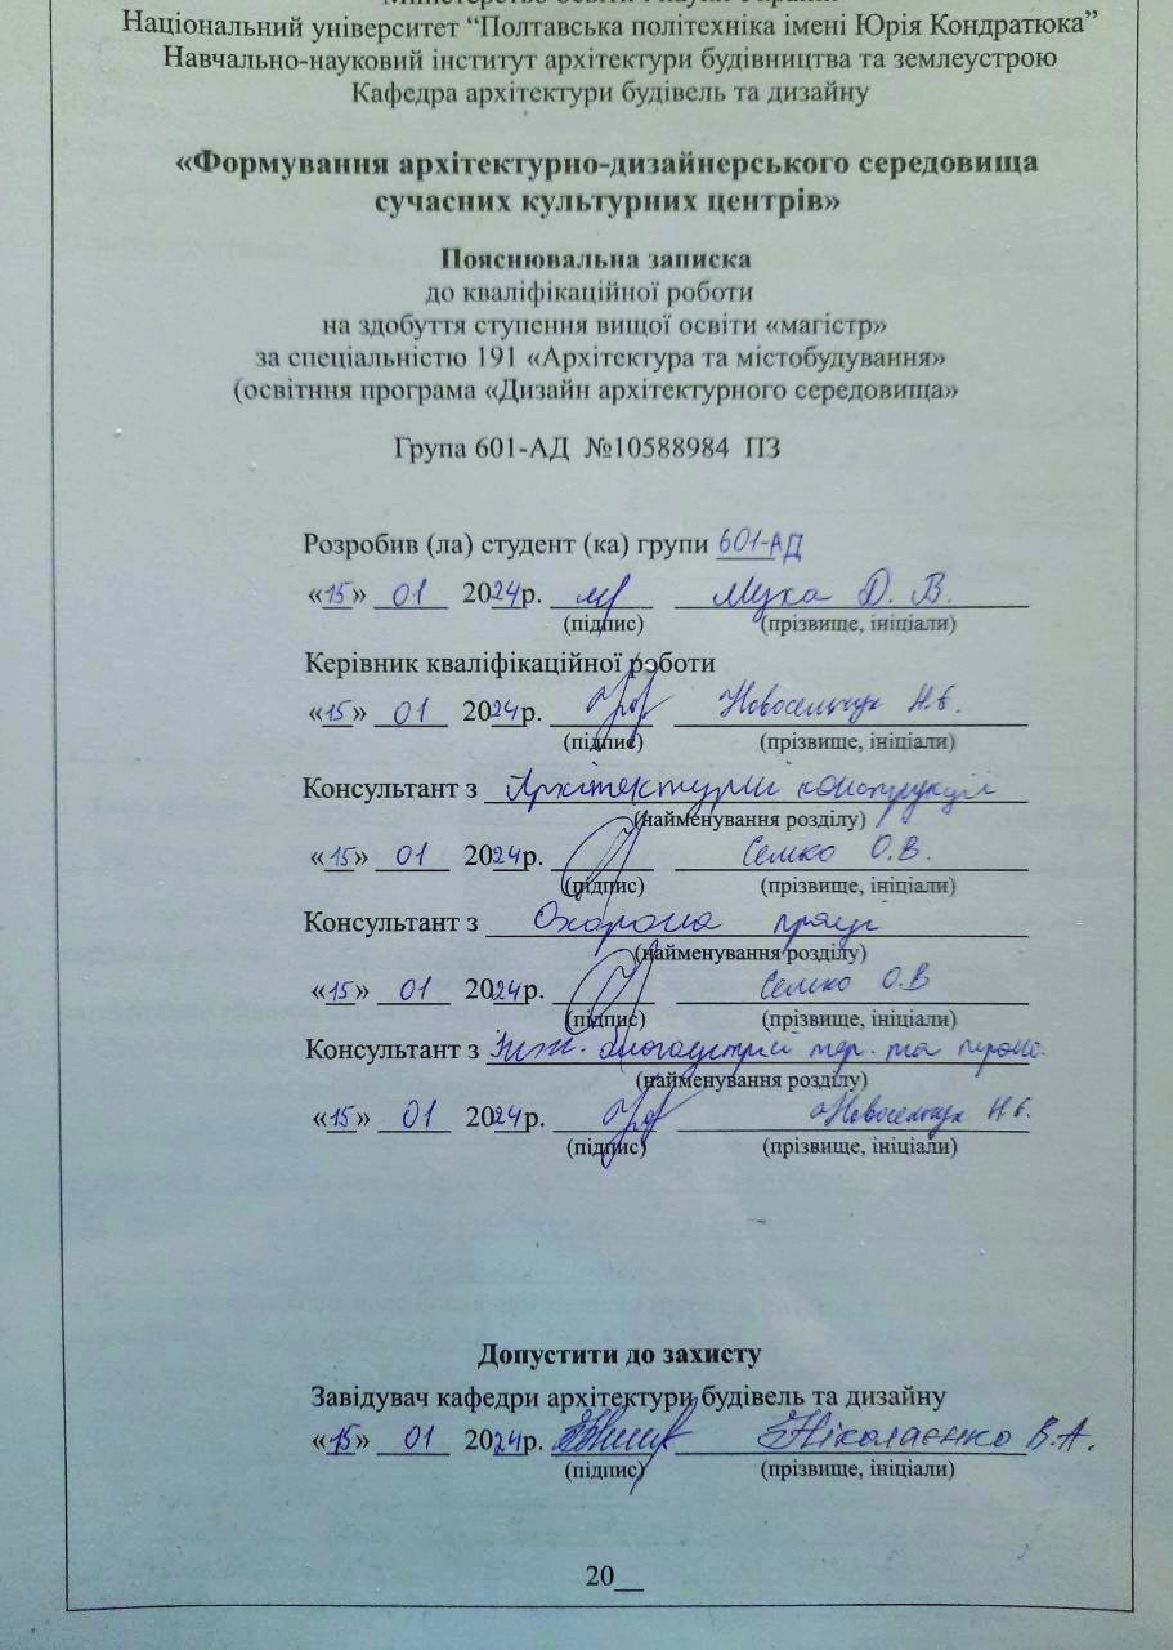 Міністерство освіти і науки України
Національний університет “Полтавська політехніка імені Юрія Кондратюка”
Навчально-науковий інститут архітектури будівництва та землеустрою
Кафедра архітектури будівель та дизайну
«Формування архітектурно-дизайнерського середовища
сучасних культурних центрів»
Пояснювальна записка
до кваліфікаційної роботи
на здобуття ступення вищої освіти «магістр»
за спеціальністю 191 «Архітектура та містобудування»
(освітння програма «Дизайн архітектурного середовища»
Група 601-АД №10588984 ПЗ
Розробив (ла) студент (ка) групи 601-АД
«15» 01 2024р. Мука Д. В.
(підпис) (прізвище, ініціали)
Керівник кваліфікаційної роботи
«15» 01 2024р. Новосельчук Н.Є.
(підпис) (прізвище, ініціали)
Консультант з Архітектурні конструкції
(найменування розділу)
«15» 01 2024р. Семко О.В.
(підпис) (прізвище, ініціали)
Консультант з Охорона праці
(найменування розділу)
«15» 01 2024р. Семко О.В
(підпис) (прізвище, ініціали)
Консультант з Інж. благоустрій тер. та
(найменування розділу)
«15» 01 2024р. Новосельчук Н.Є.
(підпис) (прізвище, ініціали)
Допустити до захисту
Завідувач кафедри архітектури будівель та дизайну
«15» 01 2024р. Ніколаєнко В.А.
(підпис) (прізвище, ініціали)
20__